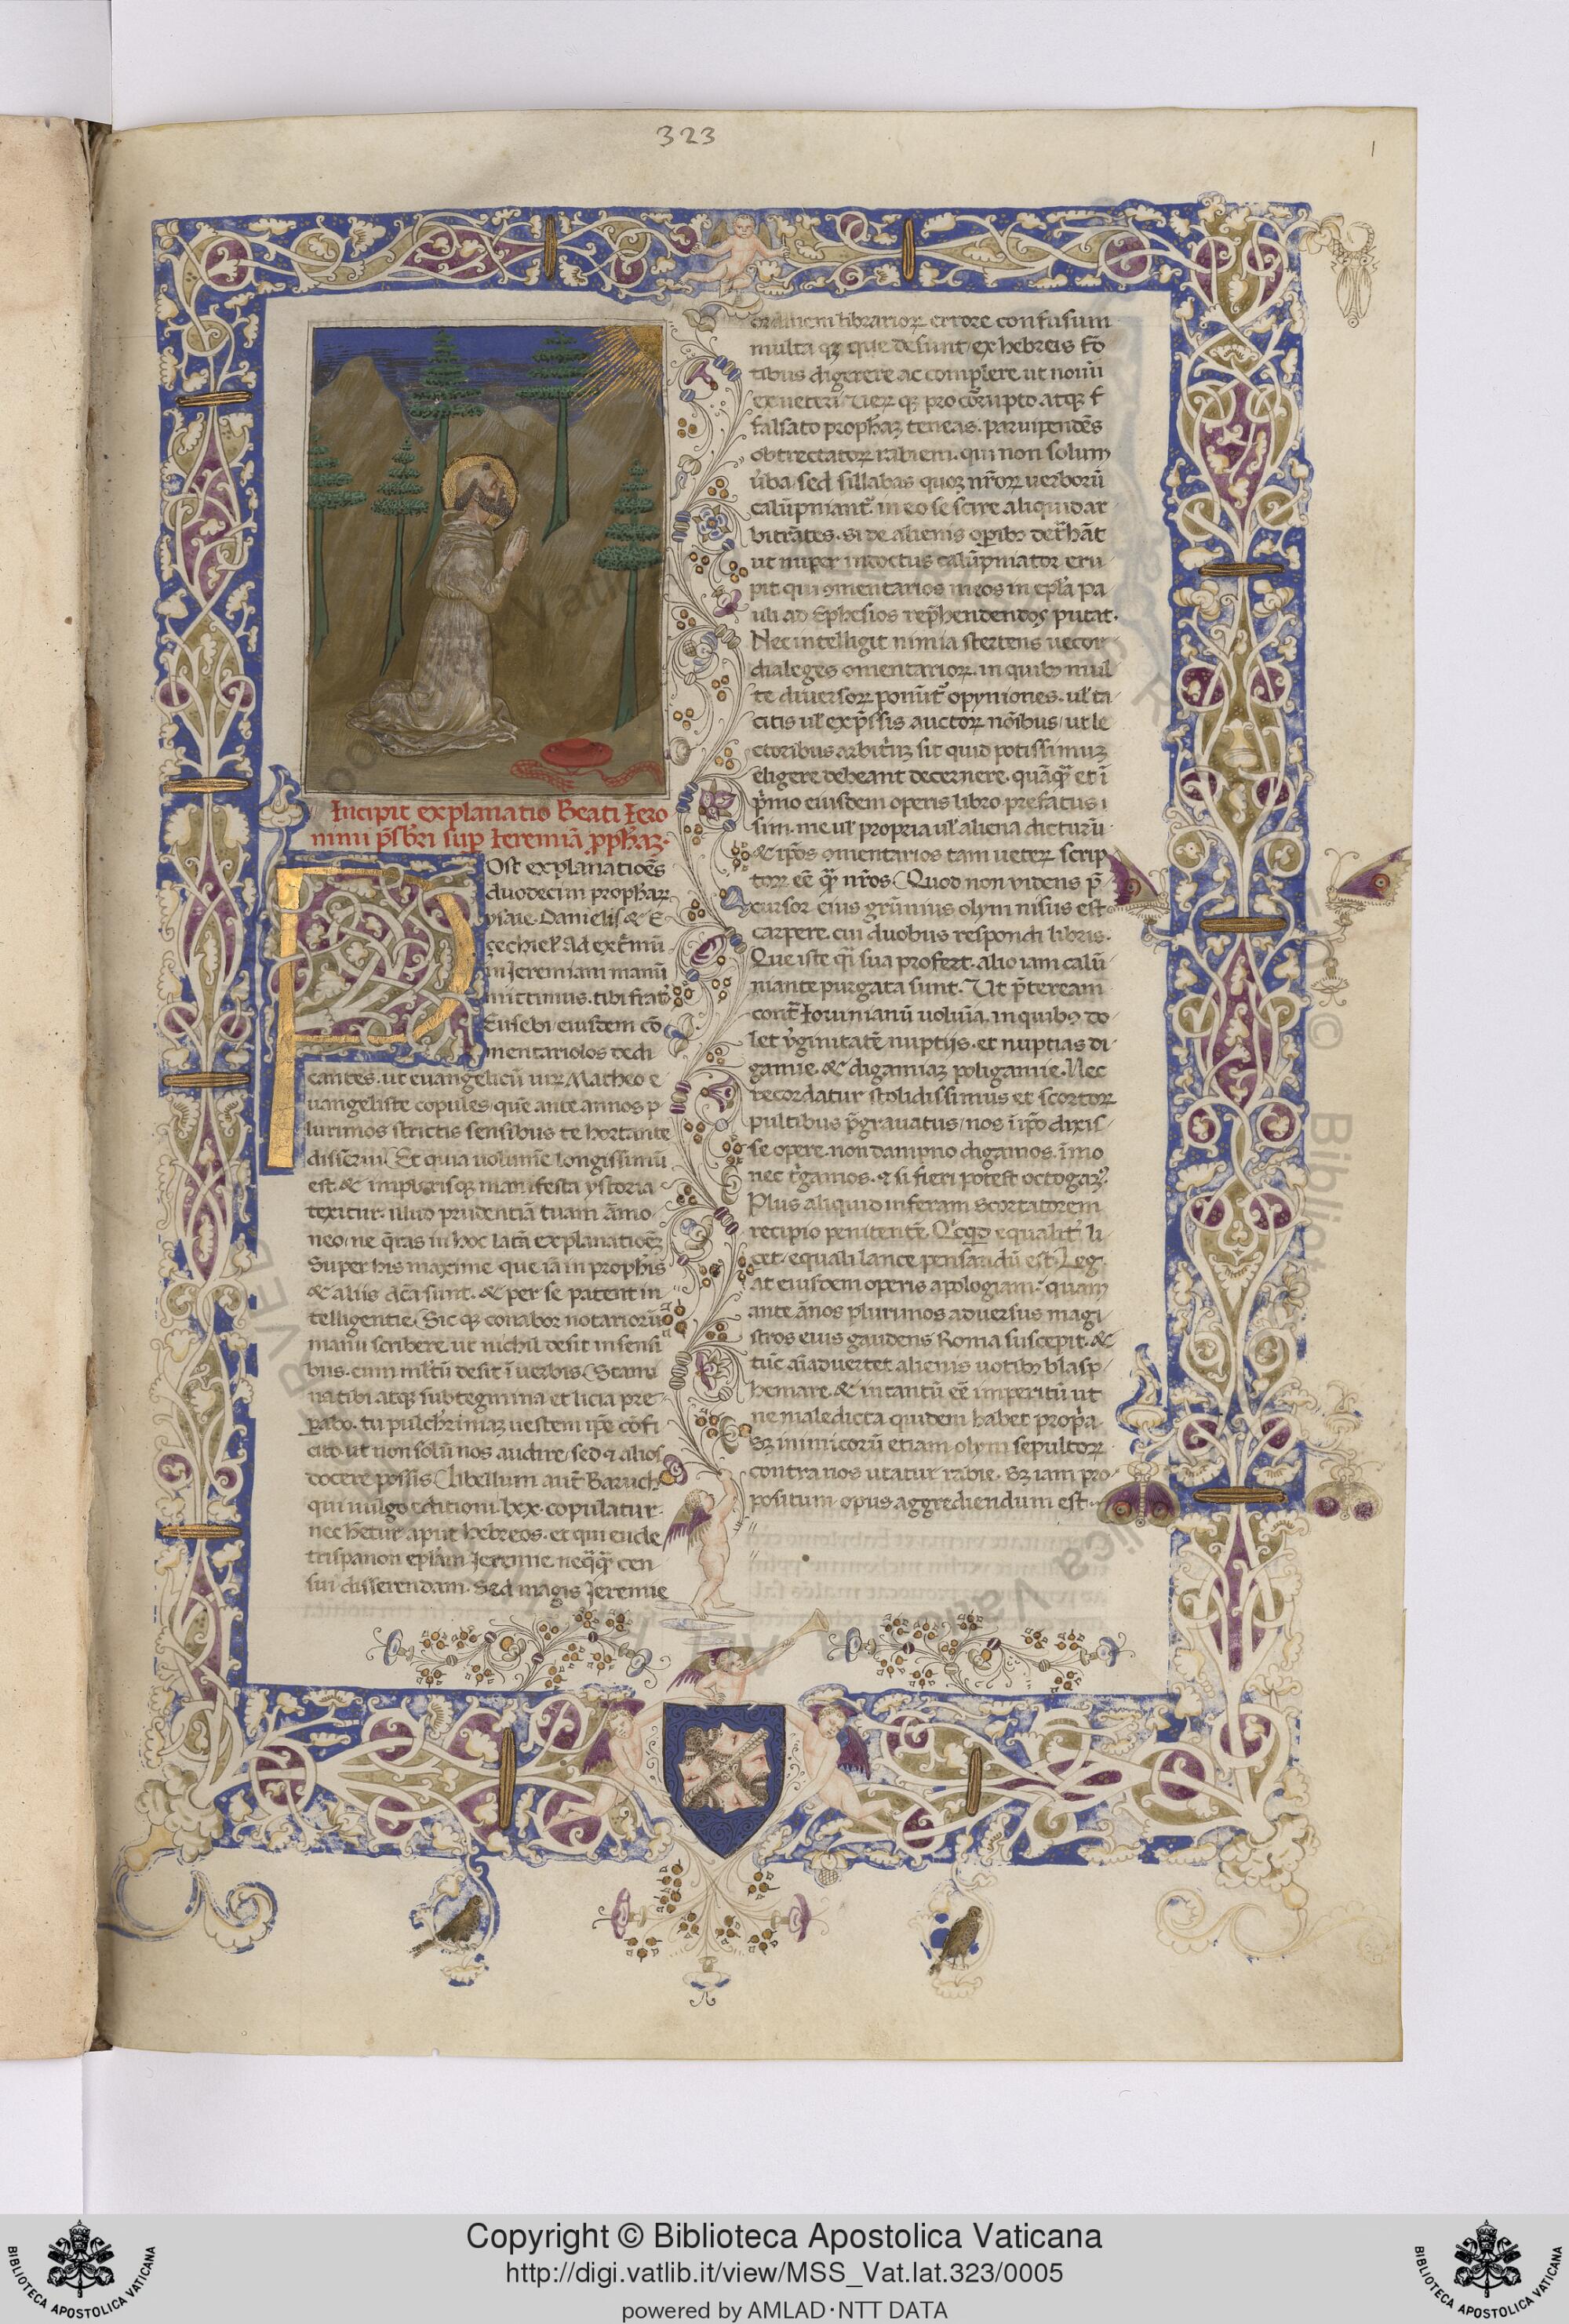 323
1
Incipit explanatio Beati Iero
nimi p̄sbr̄i sup Ieremiā ꝓph̄aꝫ·
POst explanatiōēs
duodecim prophaꝝ
ysaie· Danielis & E
zechiel' Ad extʳmū
in Jeremiam manū
mittimus· tibi frat'
Eusebi eiusdem cō
mentariolos dedi
cantes· ut euangelicū uirꝝ Matheo e
uangeliste copules· quē ante annos p
lurimos strictis sensibus te hortante
disserui Et quia uolumē longissimū
est· & imp̄arisqꝫ manifesta ystoria
texitur· illud prudentiā tuam āmo
neo· ne q̄ras in hoc latā explanatioēꝫ
Super his maxime que iā in proph̄is
& aliis dc̄a sunt· & per se patent in
telligentie· Sic qꝫ conabor notarioꝝ
manu scribere ut nichil desit in sensi
bus· cum ml̄tū desit ī uerbis Stami
na tibi atqꝫ subtegmina et licia pre
parabo· tu pulch'rimaꝫ uestem ip̄e cōfi
cito· ut non solū nos audire· sed & alios
docere possis Libellum aut̄ Baruch
qui uulgo editioni· lxx· copulatur·
nec h̄etur aput hebreos· et
ep̄lam Jeremie neq̄q̄ cen
sui disserendam· Sed magis Jeremie
ordinem librarioꝝ errore confusum
multa qꝫ que desunt· ex hebreis fō
tibus digerere ac complere ut nouū
ex ueteri· Veꝝ qꝫ pro corrupto atqꝫ f
falsato prophaꝫ teneas· paruipendēs
obtrectatoꝝ rabiem· qui non solum
ūba· sed sillabas quoqꝫ nr̄oꝝ uerborū
calūpniant'· in eo se scire aliquid ar
bitrātes· si de alienis op̄ibꝫ det̄hāt
ut nuper indoctus calūpniator eru
pit· qui ꝯmentarios meos in epl̄a pa
uli ad Ephesios rep̄hendendos putat·
Nec intelligit nimia stertens uecor
dia leges ꝯmentarioꝝ· in quibꝫ mul
te diuersoꝝ ponūt' opyniones· ul' ta
citis ul' exp̄ssis auctoꝝ nōibus· ut le
ctoribus arbit'uꝫ sit quid potissimuꝫ
eligere debeant decernere· quāq̄ et ī
p̄mo eiusdem operis libro prefatus
sim· me ul' propria ul' aliena dicturū·
& ip̄os ꝯmentarios tam ueteꝝ scrip
toꝝ eē q̄ nr̄os Quod non uidens p̄
cursor eius grūnius olym nisus est
carpere· cui duobus respondi libris·
Que iste q̄i sua profert· alio iam calū
niante purgata sunt· Ut p̄teream
cont̄ Iouinianū uoluīa· in quibꝫ do
let ūginitatē nuptijs· et nuptias di
gamie· & digamiaꝫ poligamie· Nec
recordatur stolidissimus et scotoꝝ
pultibus p̄grauatus· nos ī ip̄o dixis
se opere· non dampno digamos· īmo
nec t'gamos· & si fieri potest octogaꝫ·
Plus aliquid inferam Scortatorem
recipio penitentē· equalit' li
cet· equali lance pensandū est· Leg
at eiusdem operis apologiam· quam
ante ānos plurimos aduersus magi
stros eius gaudens Roma suscepit· &
tūc aīaduertet alienis uotibꝫ blasp
hemare· & in tantū eē imperitū ut
ne maledicta quidem habet prop̄a
Sꝫ inimicorū etiam olym sepultoꝝ
contra nos utatur rabie· Sꝫ iam pro
positum opus aggrediendum est·
Copyright © Biblioteca Apostolica Vaticana
http://digi.vatlib.it/view/MSS_Vat.lat.323/0005
powered by AMLAD·NTT DATA
BIBLIOTECA APOSTOLICA VATICANA
BIBLIOTECA APOSTOLICA VATICANA